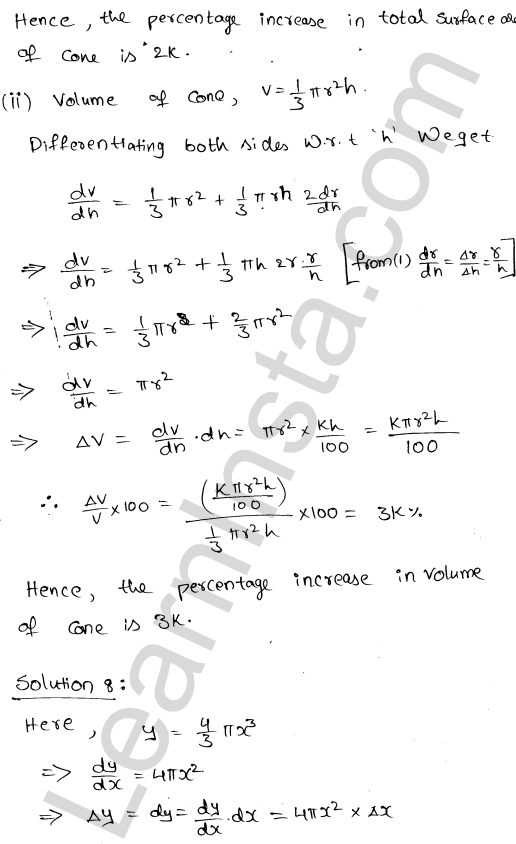 Hence, the percentage increase in total surface are
of cone is 2K.
(ii) Volume of cone, V = 1/3 πr²h.
Differentiating both sides w.r.t 'h' we get
dv/dh = 1/3 πr² + 1/3 πrh 2dr/dh
⇒ dv/dh = 1/3 πr² + 1/3 πh 2r · r/h [from(1) dr/dh = Δr/Δh = r/h]
⇒ dv/dh = 1/3 πr² + 2/3 πr²
⇒ dv/dh = πr²
⇒ ΔV = dv/dh · dh = πr² × Kh/100 = Kπr²h/100
∴ ΔV/V × 100 = (Kπr²h/100) / (1/3 πr²h) × 100 = 3K%
Hence, the percentage increase in volume
of cone is 3K.
Solution 8:
Here, y = 4/3 πx³
⇒ dy/dx = 4πx²
⇒ Δy = dy = dy/dx · dx = 4πx² × Δx
LearnInsta.com